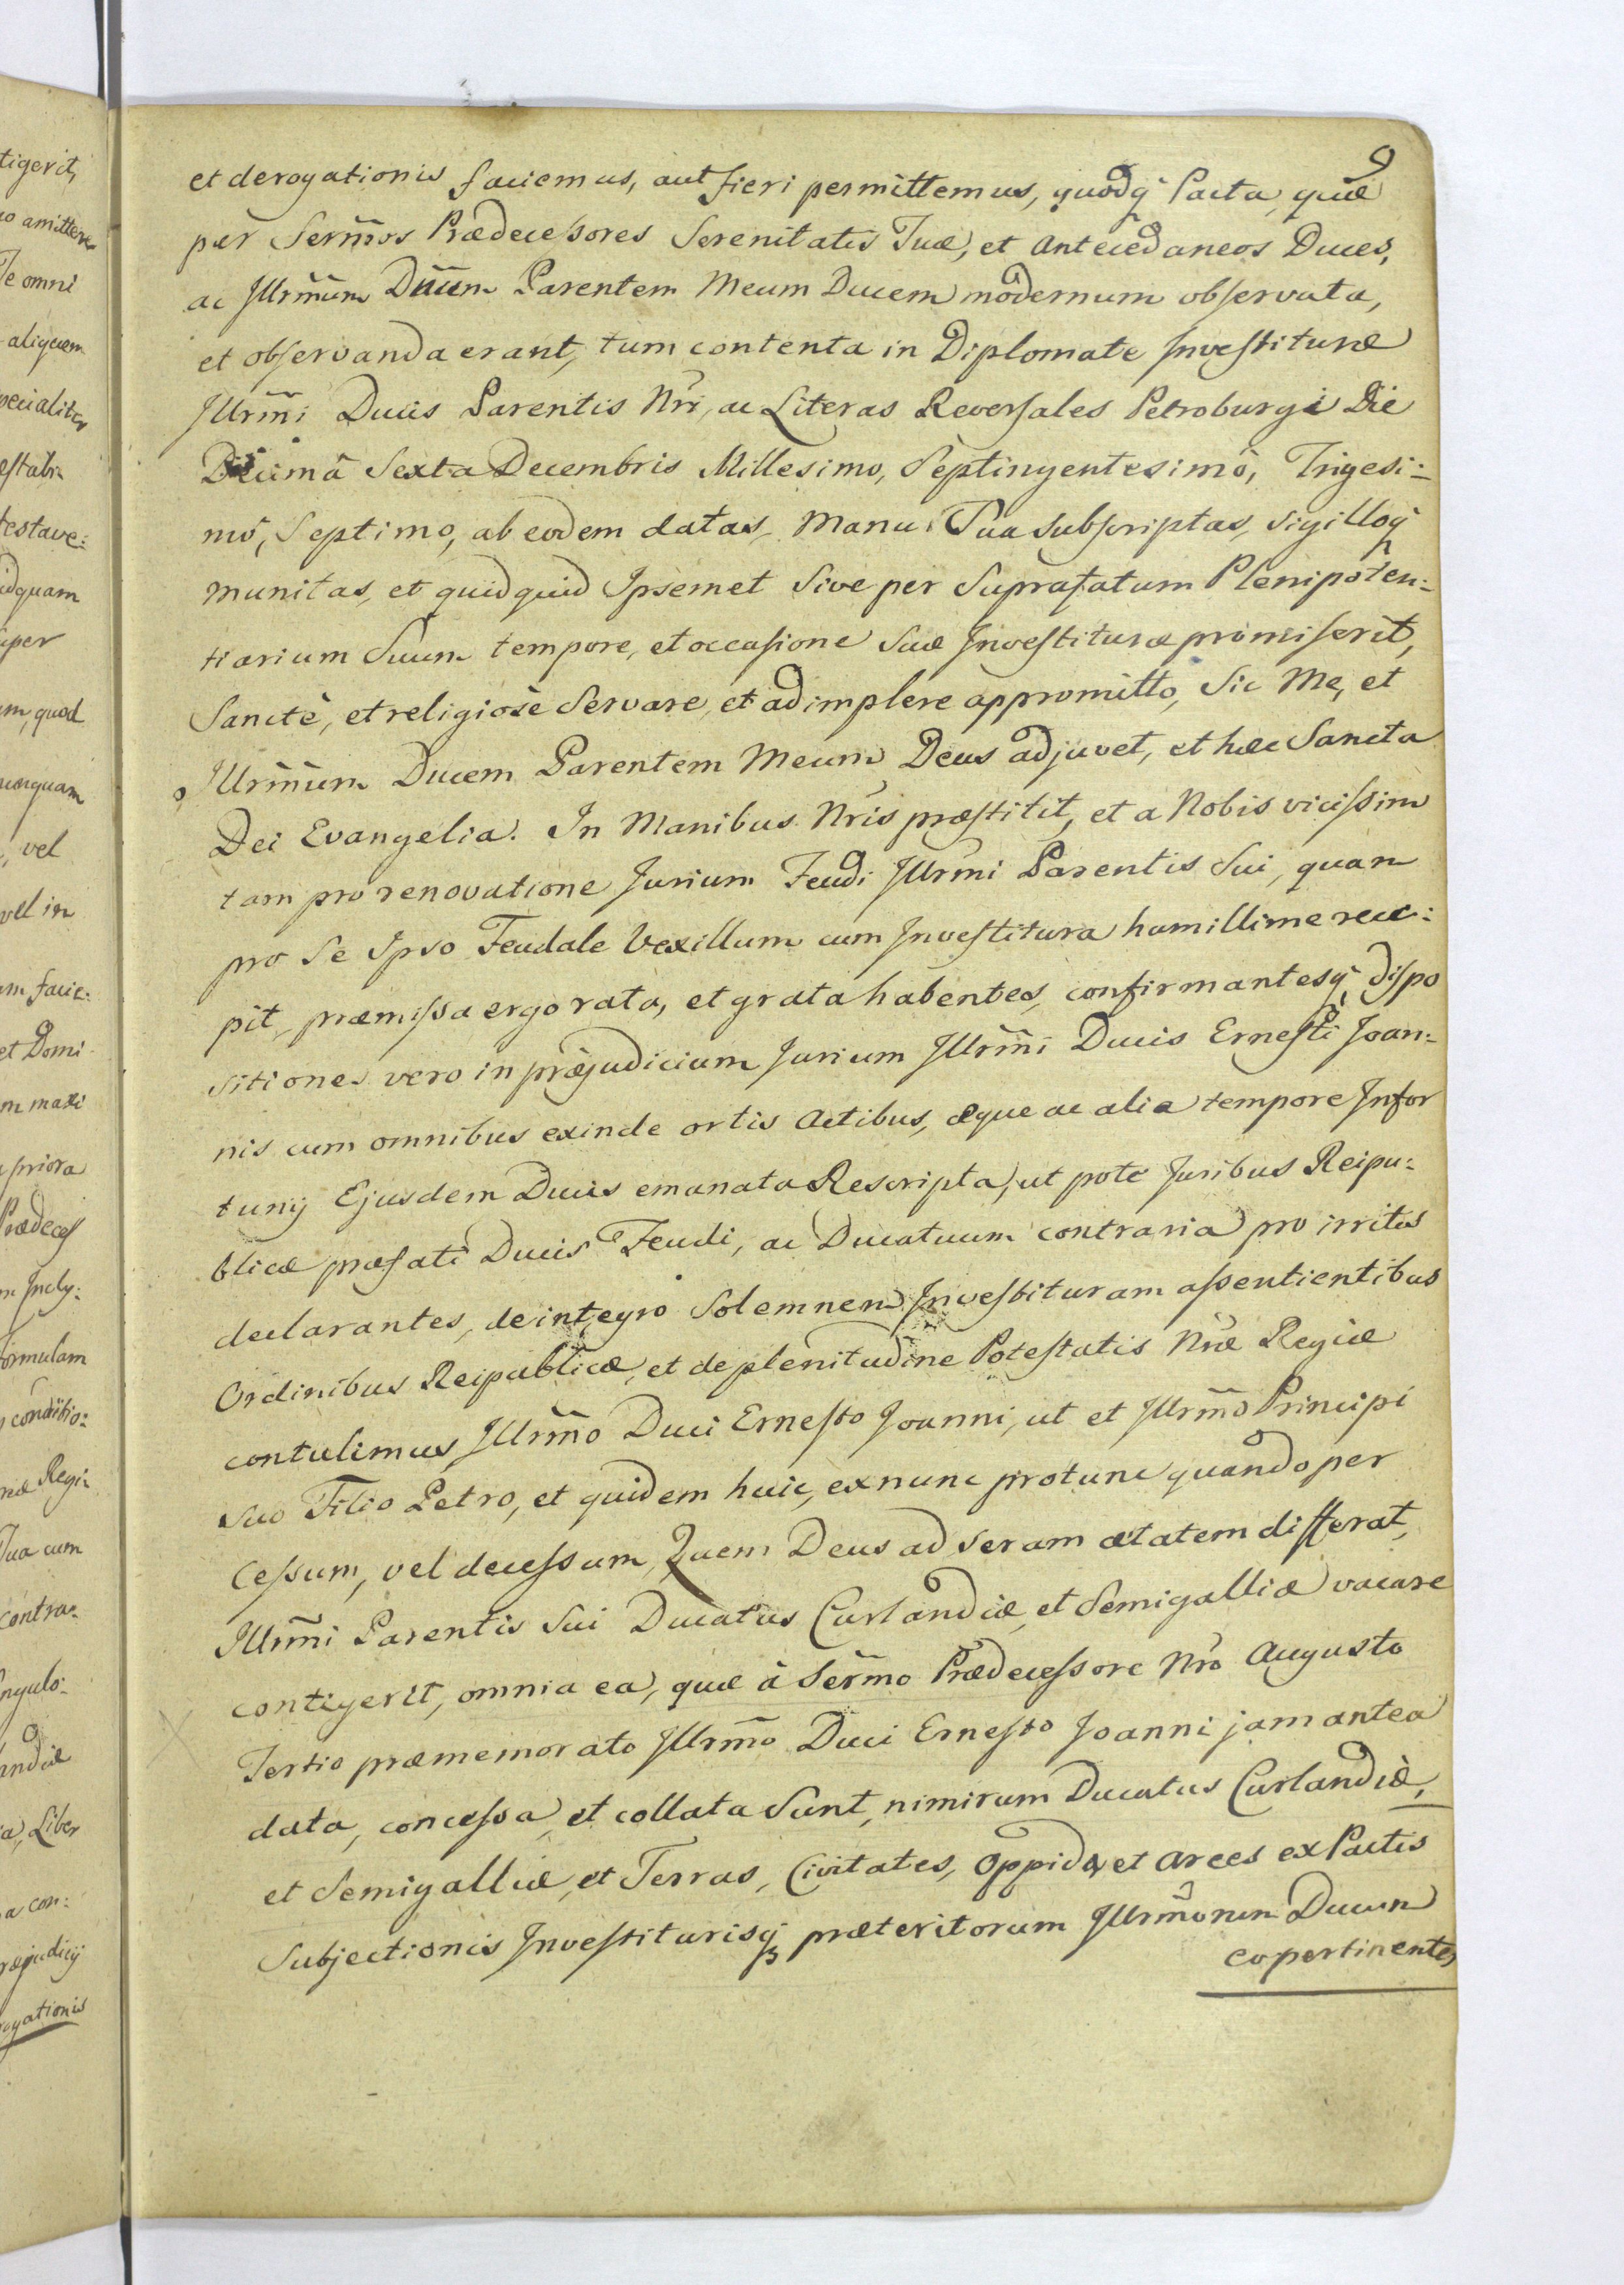 tigerit,
o amittere
Te omni
aliquem
pecialiter
estabi-
testave:
idquam
super
m, quod
unquam
, vel
vel in
m facie:
et Domi
m maxi
priora
Prædeces
m Incly:
formulam
conditio:
næ Regi:
Tua cum
contra:
ngulo:
andiæ
a, Liber
a con:
ræjudicij
rogationis
9
et derogationis faciemus, aut fieri permittemus, quodq̃ Pacta, quæ
per Serm̃os Prædecessores Serenitatis Tuæ, et Antecedaneos Duces,
ac Illrm̃um Dñum Parentem Meum Ducem modernum observata,
et observanda erant, tum contenta in Diplomate Investituræ
Illrm̃i Ducis Parentis Nr̃i, ac Literas Reversales Petroburgi Die
Decimâ Sexta Decembris Millesimo, Septingentesimô, Trigesi:
mô, Septimo, ab eodem datas, Manu Sua subscriptas, sigilloq̃
munitas, et quidquid Ipsemet sive per Suprafatum Plenipoten:
tiarium Suum tempore, et occasione Suæ Investituræ promiserit,
Sanctè, et religiosè Servare, et adimplere appromitto, Sic Me, et
Illrm̃um Ducem Parentem Meum Deus adjuvet, et hæc Sancta
Dei Evangelia. In Manibus Nr̃is præstitit, et a Nobis vicissim
tam pro renovatione Jurium Feudi Illrm̃i Parentis Sui, quam
pro Se Ipso Feudale Vexillum cum Investitura humillime rece:
pit, præmissa ergo rata, et grata habentes, confirmantesq̃, dispo
sitiones vero in præjudicium Jurium Illrm̃i Ducis Ernesti Joan:
nis cum omnibus exinde ortis Actibus, æque ac alia tempore Infor
tunij Ejusdem Ducis emanata Rescripta, ut pote Juribus Reipu:
blicæ præfati Ducis Feudi, ac Ducatuum contraria pro irritis
declarantes, de integro Solemnem Investituram assentientibus
Ordinibus Reipublicæ, et de plenitudine Potestatis Nr̃æ Regiæ
contulimus Illrm̃o Duci Ernesto Joanni, ut et Illrm̃o Principi
Suo Filio Petro, et quidem huic, ex nunc pro tunc quando per
Cessum, vel decessum, Quem Deus ad seram ætatem differat,
Illrm̃i Parentis Sui Ducatus Curlandiæ, et Semigalliæ vacare
contigerit, omnia ea, quæ à Serm̃o Prædecessore Nr̃o Augusto
Tertio præmemorato Illrm̃o Duci Ernesto Joanni jam antea
data, concessa, et collata Sunt, nimirum Ducatus Curlandiæ,
et Semigalliæ, et Terras, Civitates, Oppida, et Arces ex Pactis
Subjectionis Investiturisq̃ præteritorum Illrm̃orum Ducum
eo pertinentes